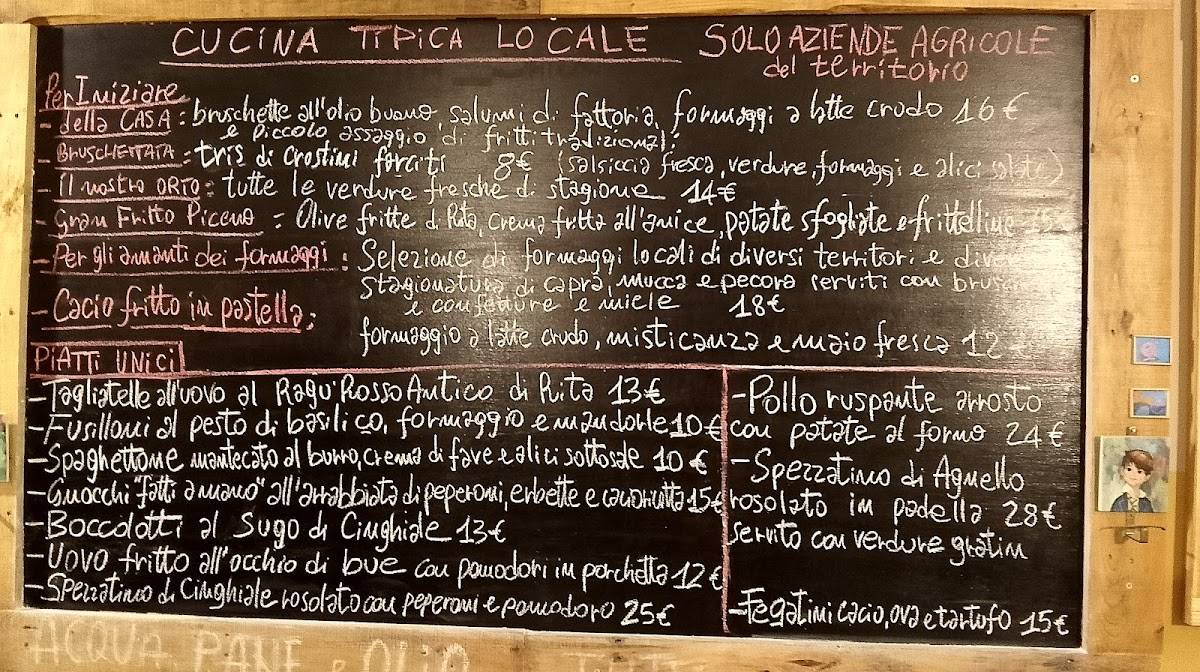 CUCINA TIPICA LOCALE SOLO AZIENDE AGRICOLE
del territorio
Per Iniziare
- della CASA : bruschette all'olio buono, salumi di fattoria, formaggi a latte crudo 16€
e piccolo assaggio di fritti tradizionali.
- BRUSCHETTATA : tris di crostini farciti 8€ (salsiccia fresca, verdure, formaggi e alici salate)
- Il nostro ORTO : tutte le verdure fresche di stagione 14€
- Gran Fritto Piceno : Olive fritte di Rita, crema fritta all'anice, patate sfogliate e frittelline 15€
- Per gli amanti dei formaggi : Selezione di formaggi locali di diversi territori e
stagionatura di capra, mucca e pecora serviti con
e confetture e miele 18€
- Cacio fritto in pastella :
formaggio a latte crudo, misticanza e maio fresca 12
PIATTI UNICI
- Tagliatelle all'uovo al Ragu' Rosso Antico di Rita 13€
- Fusilloni al pesto di basilico, formaggio e mandorle 10€
- Spaghettone mantecato al burro, crema di fave e alici sottosale 10€
- Gnocchi "fatti a mano" all'arrabbiata di peperoni, erbette e 15€
- Boccolotti al Sugo di Cinghiale 13€
- Uovo fritto all'occhio di bue con pomodori in porchetta 12€
- Spezzatino di Cinghiale rosolato con peperoni e pomodoro 25€
- Pollo ruspante arrosto
con patate al forno 24€
- Spezzatino di Agnello
rosolato in padella 28€
servito con verdure gratin
- Fegatini cacio, ova e tartufo 15€
ACQUA PANE e OLIO